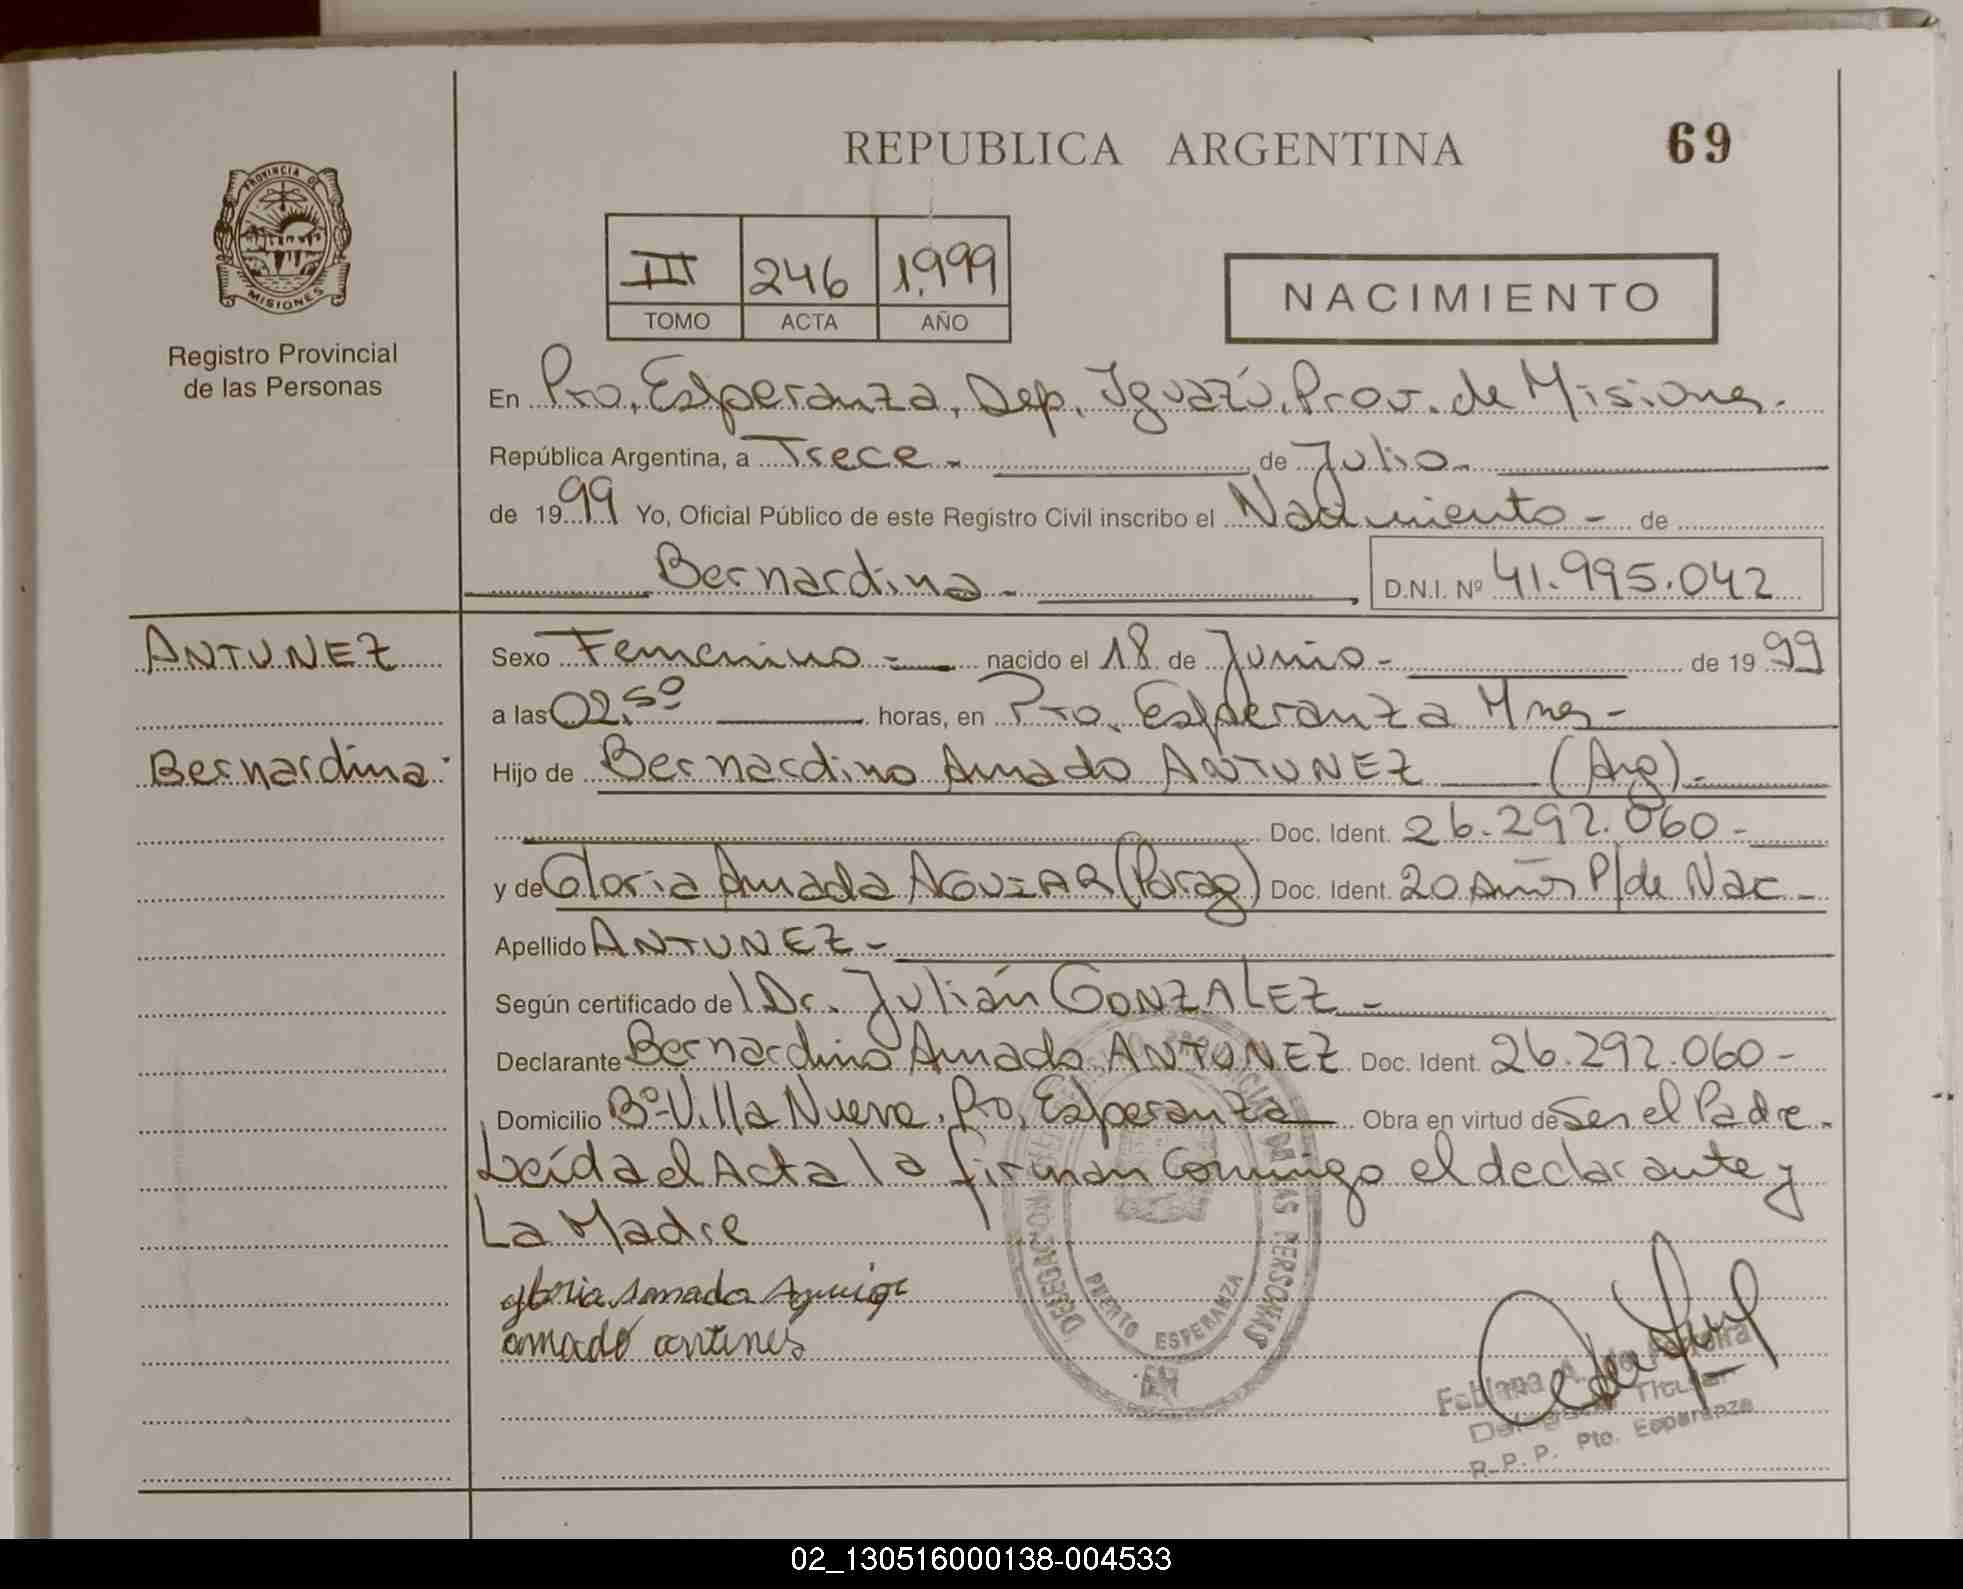 REPUBLICA ARGENTINA
69
PROVINCIA DE
MISIONES
Registro Provincial
de las Personas
III 246 1.999
TOMO ACTA AÑO
NACIMIENTO
En Pto. Esperanza, Dep. Iguazú, Prov. de Misiones.
República Argentina, a Trece - de Julio -
de 1999 Yo, Oficial Público de este Registro Civil inscribo el Nacimiento - de
Bernardina - , D.N.I. Nº 41.995.042
ANTUNEZ
Bernardina
Sexo Femenino - nacido el 18 de Junio - de 1999
a las 02,50 horas, en Pto. Esperanza Mnes -
Hijo de Bernardino Amado ANTUNEZ (Arg) -
Doc. Ident. 26.292.060 -
y de Gloria Amada AGUIAR (Parag) Doc. Ident. 20 Años P/de Nac -
Apellido ANTUNEZ -
Según certificado de l Dr. Julián GONZALEZ -
Declarante Bernardino Amado ANTUNEZ Doc. Ident. 26.292.060 -
Domicilio Bº Villa Nueva, Pto. Esperanza Obra en virtud de Ser el Padre.
Leída el Acta la firman Conmigo el declarante y
La Madre
gloria amada
amado antunes
DELEGACION
DE LAS PERSONAS
PUERTO ESPERANZA
Fabiana A.
Titular
R.P.P. Pto. Esperanza
02_130516000138-004533